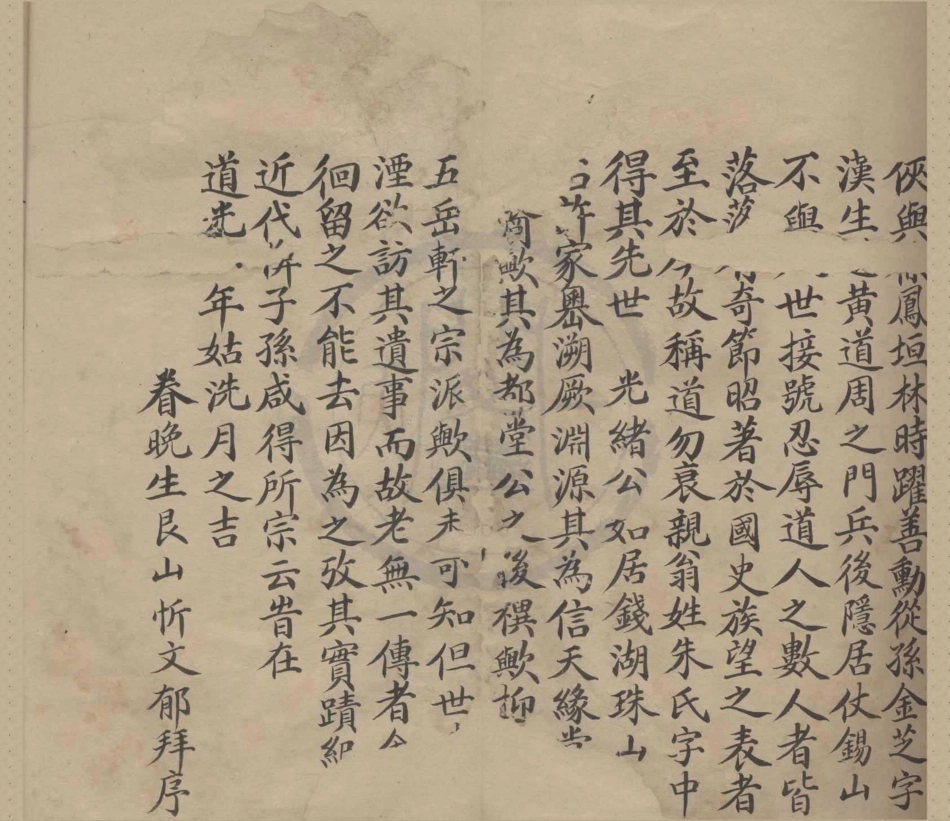 俠與鳳垣林時躍善勳從孫金芝字
漢生黃道周之門兵後隱居仗錫山
不與世接號忍辱道人之數人者皆
落落有奇節昭著於國史族望之表者
至於今故稱道勿衰親翁姓朱氏字中
得其先世 光緒公如居錢湖珠山
許家嶴溯厥淵源其為信天緣
歟其為都堂公之後禩歟抑
五岳軒之宗派歟俱未可知但世
湮欲訪其遺事而故老無一傳者今
徊留之不能去因為之攷其實蹟
近代俾子孫咸得所宗云旹在
道光年姑洗月之吉
眷晚生艮山忻文郁拜序